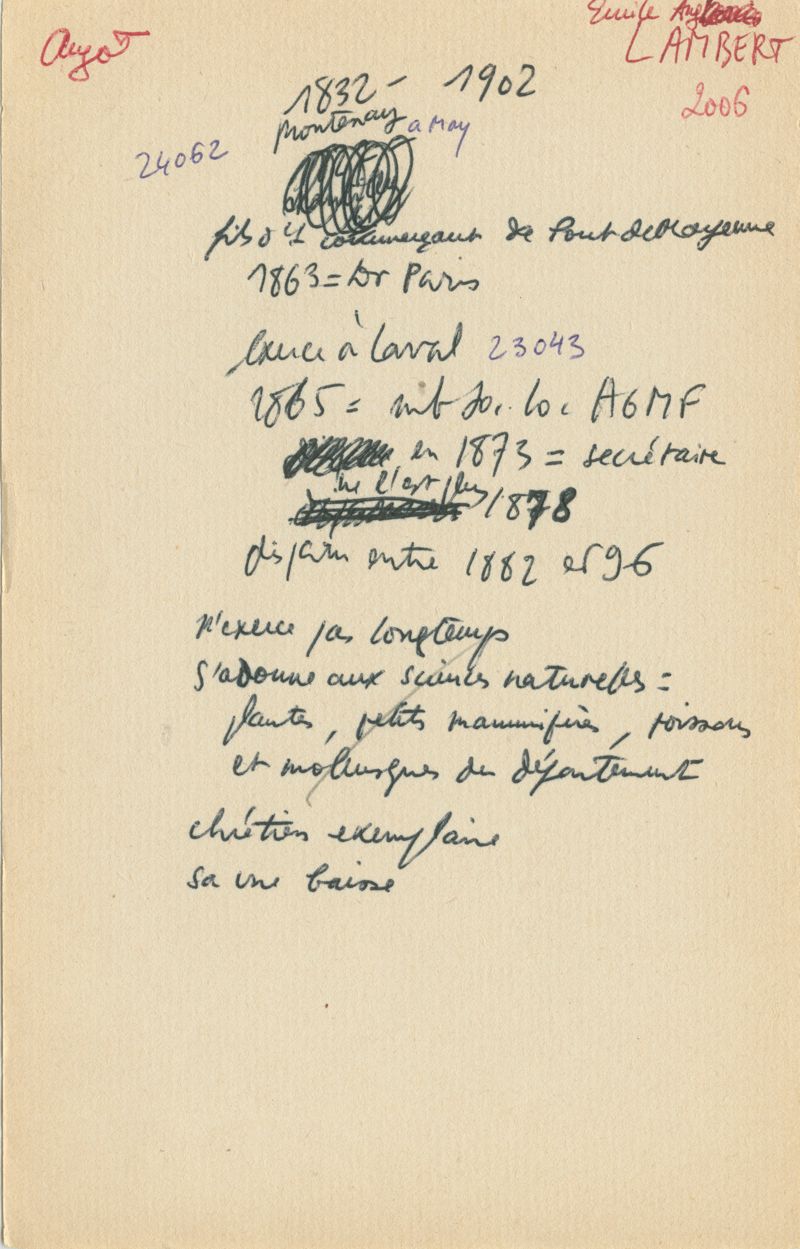 Angot
Emile
LAMBERT
2006
1832 - 1902
Montenay a May
24062
fils d'1 commerçant de Pont de Mayenne
1863 = Dr Paris
exerce à Laval 23043
1865 = mb so. lo. AGMF
en 1873 = secrétaire
ne l'est plus
1878
disparu entre 1882 et 96
N'exerce pas longtemps
s'adonne aux sciences naturelles =
plantes, petits mammifères, poissons
et mollusques du département
chrétien exemplaire
sa vue baisse